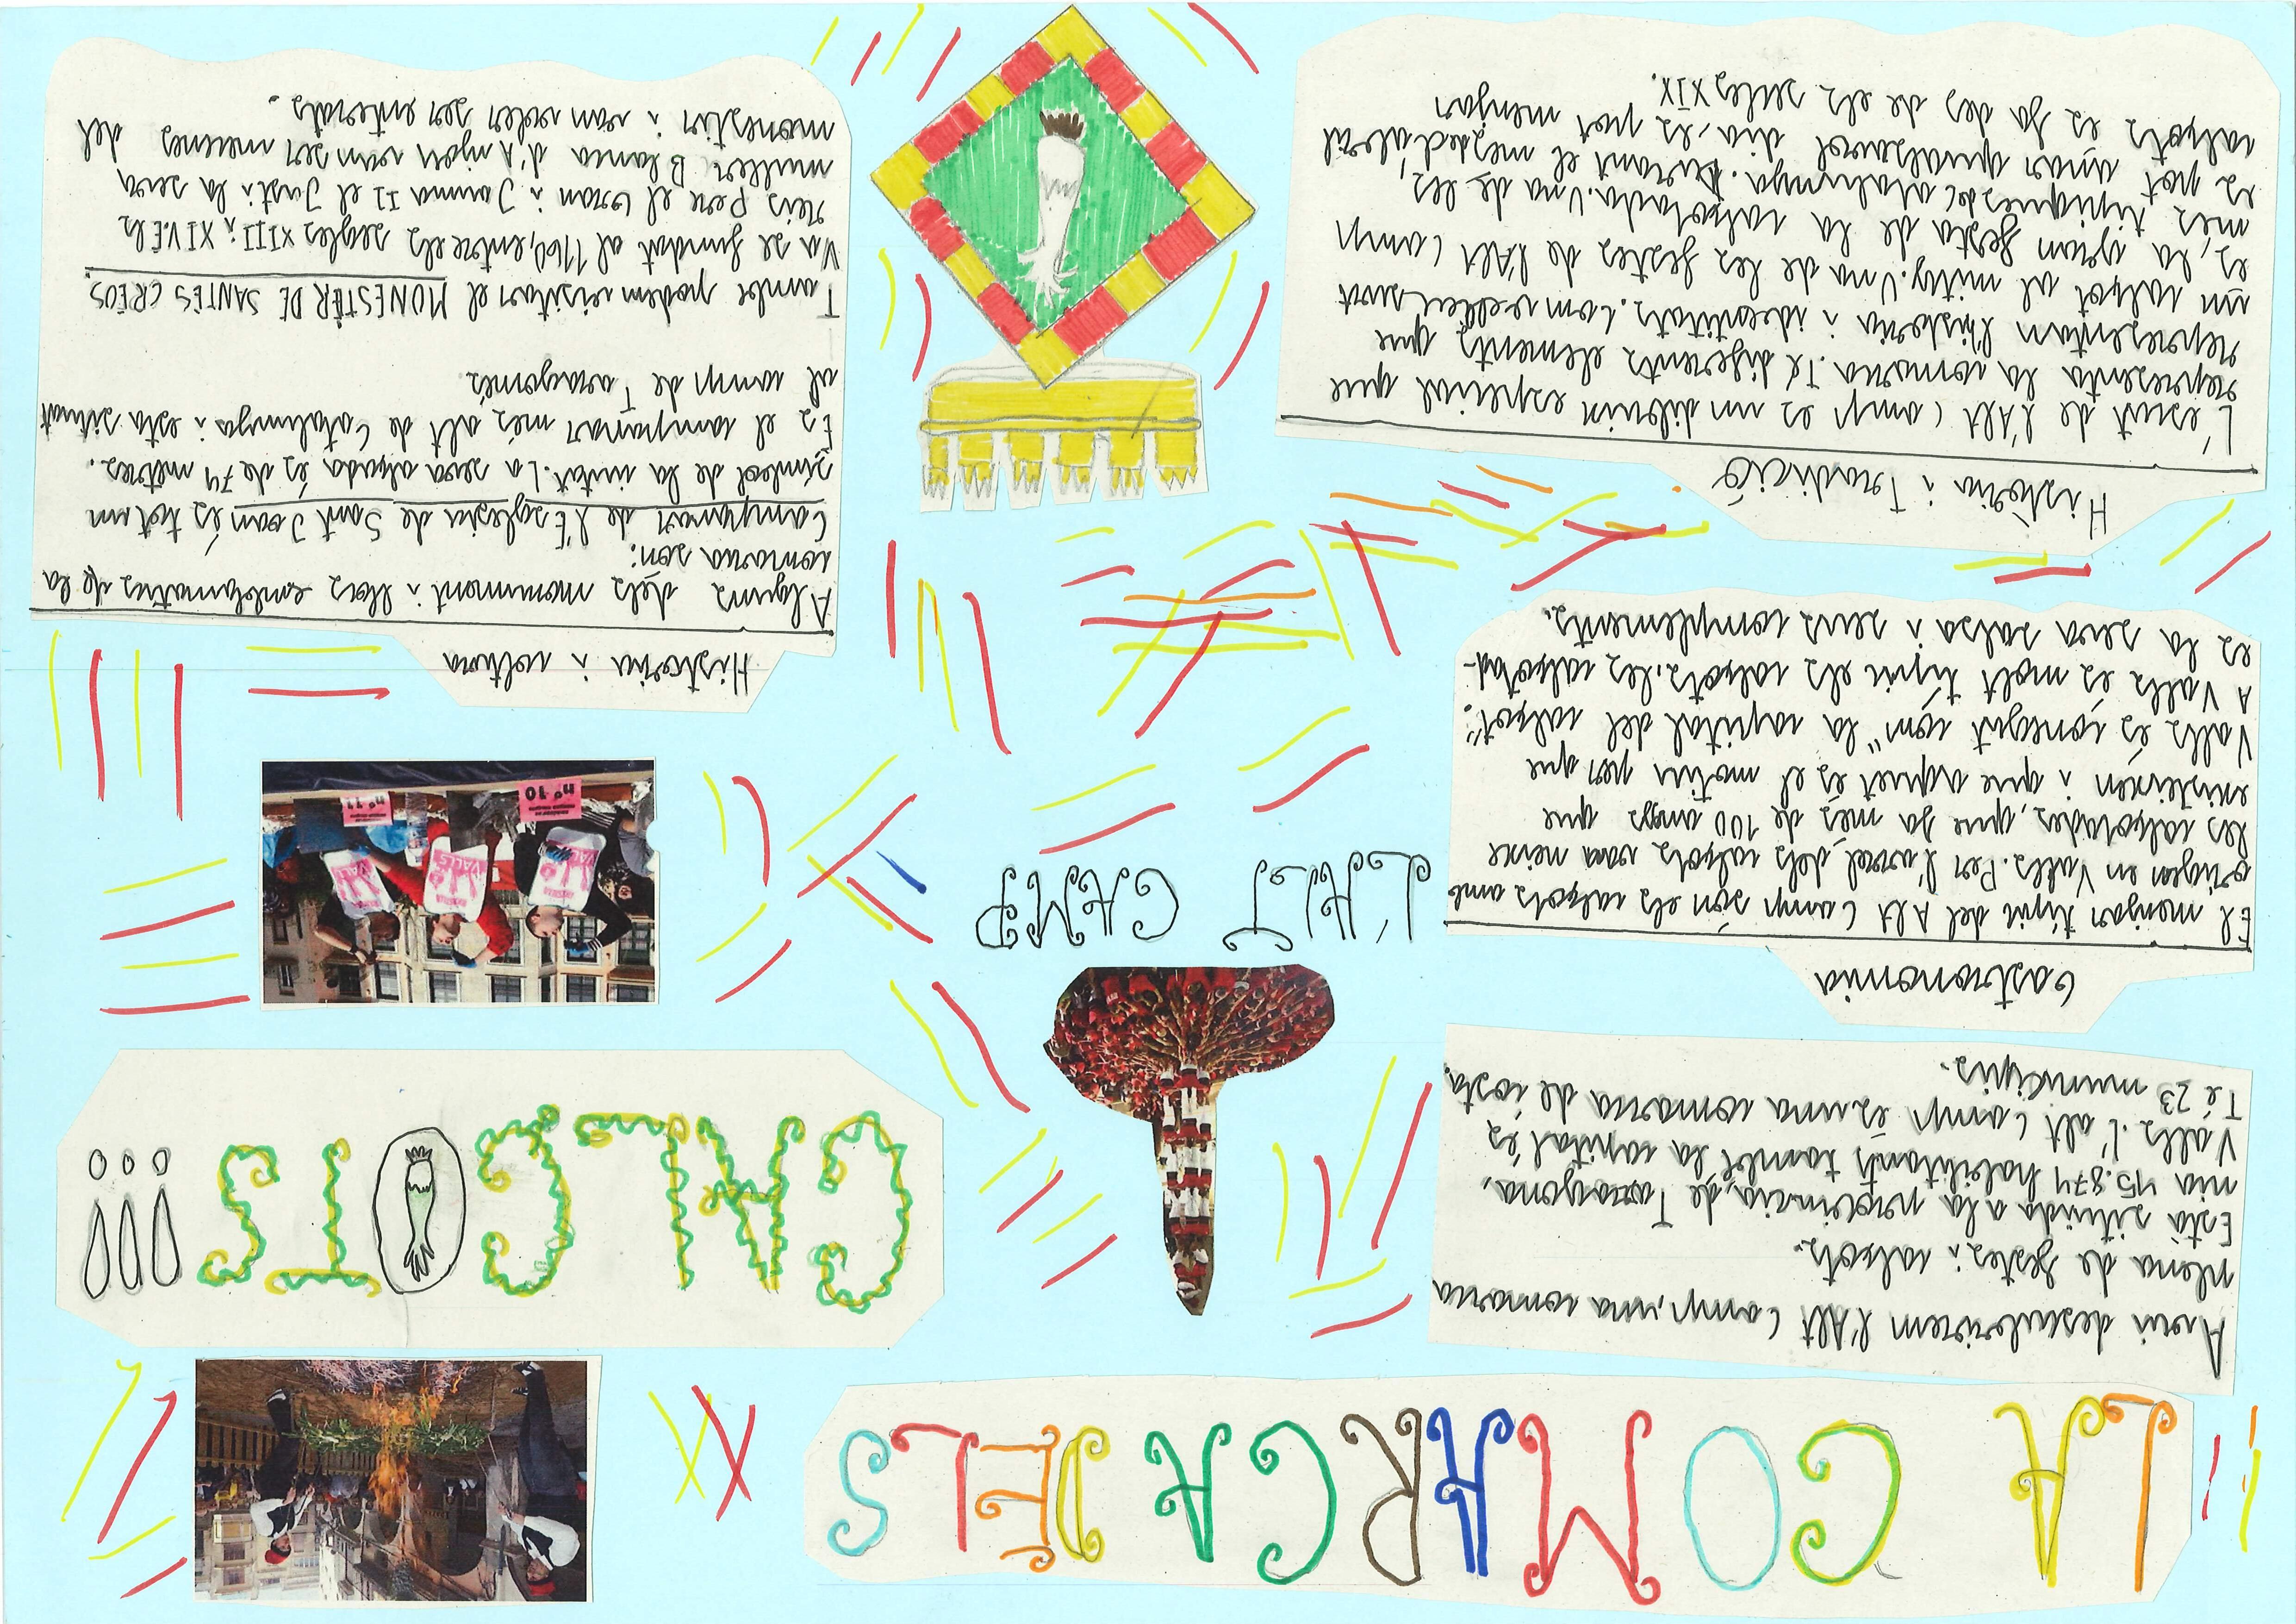 LA COMARCA DELS
CALÇOTS!!!
Avui descubrirem l'Alt Camp, una comarca
plena de festes i calçots.
Està situada a la provincia, de Tarragona,
nia 45.874 habitants també la capital és
Valls. l'alt Camp es una comarca de costa.
Té 23 municipis.
L'ALT CAMP
Gastronomia
El menjar típic del Alt Camp són els calçots amb
origen en Valls. Per l'avel, dels calçots vam neixe
les calçotades, que fa més de 100 anys que
existeixen i que aquet és el motiu per que
Valls és conegut com "la capital del calçot".
A Valls es molt típic els calçots. les calçotad-
es la seva salsa i seus complements.
nº 10
nº 11
VALLS
VALLS
VALLS
Història i Tradició
L'escut de l'Alt Camp es un dibuix especial que
representa la comarca. Té diferents elements que
representan l'història i idenditats. Com veelleu surt
un calçot al mitg. Una de les festes de l'Alt Camp
es, la gran festa de la calçotada. Una de les
més típiques de Catalunya. Durant el mes, d'abril
es pot anar qualsevol dia, es pot menjar
calçots es fa des de els seules XIX.
Història i cultura
Alguns dels monument i llocs emblematics de la
comarca son:
Campanar de l'Esglesia de Sant Joan és tot un
símbol de la ciutat. La seva alçada és de 74 metres.
Es el campanar més alt de Catalunya i esta situat
al camp de Tarragonés.
També podem visitar el MONESTÈR DE SANTES CREOS.
Va se fundat al 1160, entre els segles XIII i XIV. Els
Reis Pere el Gran i Jaume II el Just i la seva
muller Blanca d'Anjou vam ser mecenes del
monestir i vam voler ser enterats.